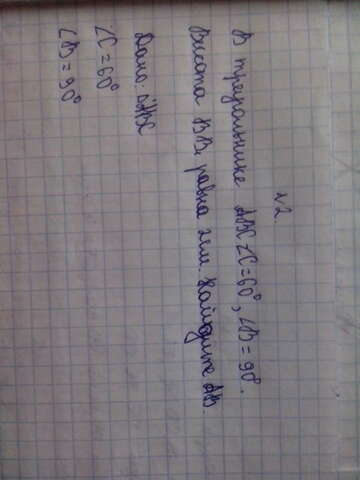 №2.
В треугольнике ABC ∠C=60°, ∠B=90°.
Высота BB₁ равна 2см. Найдите AB.
Дано: △ABC
∠C=60°
∠B=90°